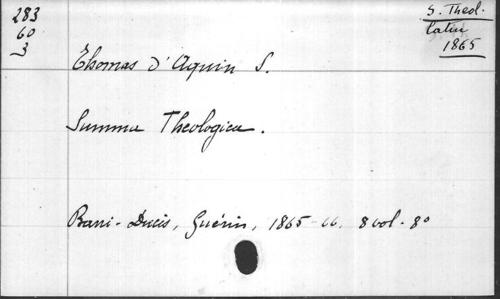 283
60
3
S. Theol.
latin
1865
Thomas d'Aquin S.
Summa Theologica.
Barri-Ducis, Guérin, 1865-66. 8 vol. 8°